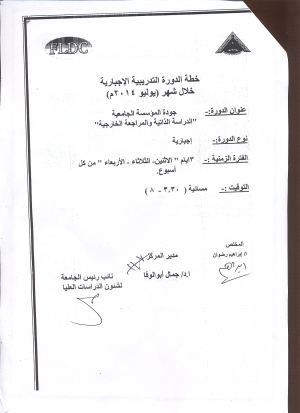 FLDC
خطة الدورة التدريبية الإجبارية
خلال شهر (يوليو ٢٠١٤م)
عنوان الدورة:- جودة المؤسسة الجامعية
"الدراسة الذاتية والمراجعة الخارجية"
نوع الدورة:- إجبارية
الفترة الزمنية :- ٣ايام " الاثنين- الثلاثاء - الأربعاء " من كل
أسبوع.
التوقيت :- مسائية ( ٣,٣٠ - ٨
المختص
ا/ إبراهيم رضوان
مدير المركز
ا.د/ جمال أبوالوفا
نائب رئيس الجامعة
لشئون الدراسات العليا